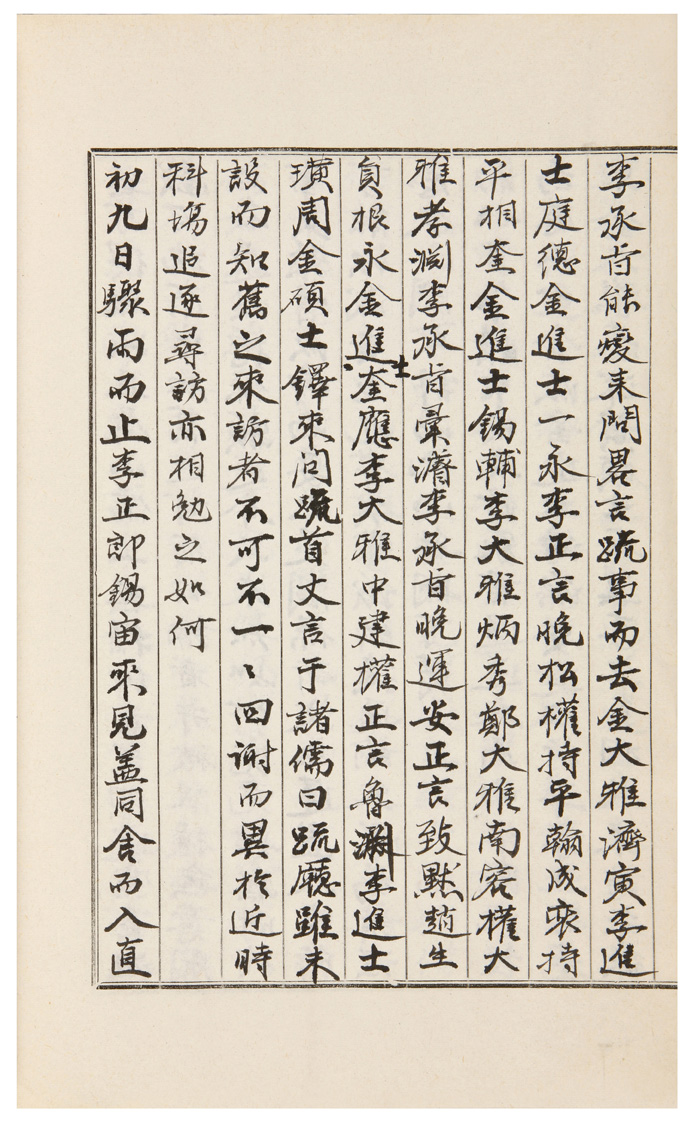 李承旨能燮来問畧言䟽事而去金大雅濟寅李進
士庭德金進士一永李正言晩松權持平翰成裵持
平相奎金進士錫輔李大雅炳秀鄭大雅南宻權大
雅孝淵李承旨彙濟李承旨晩運安正言致黙趙生
員根永金進士奎應李大雅中建權正言魯淵李進士
璜周金碩士鐸來问䟽首丈言于諸儒曰䟽廳雖未
設而知舊之來訪者不可不一〻囬谢而異於近時
科塲追逐尋訪亦相勉之如何
初九日驟雨而止李正郎錫宙來見盖同舍而入直